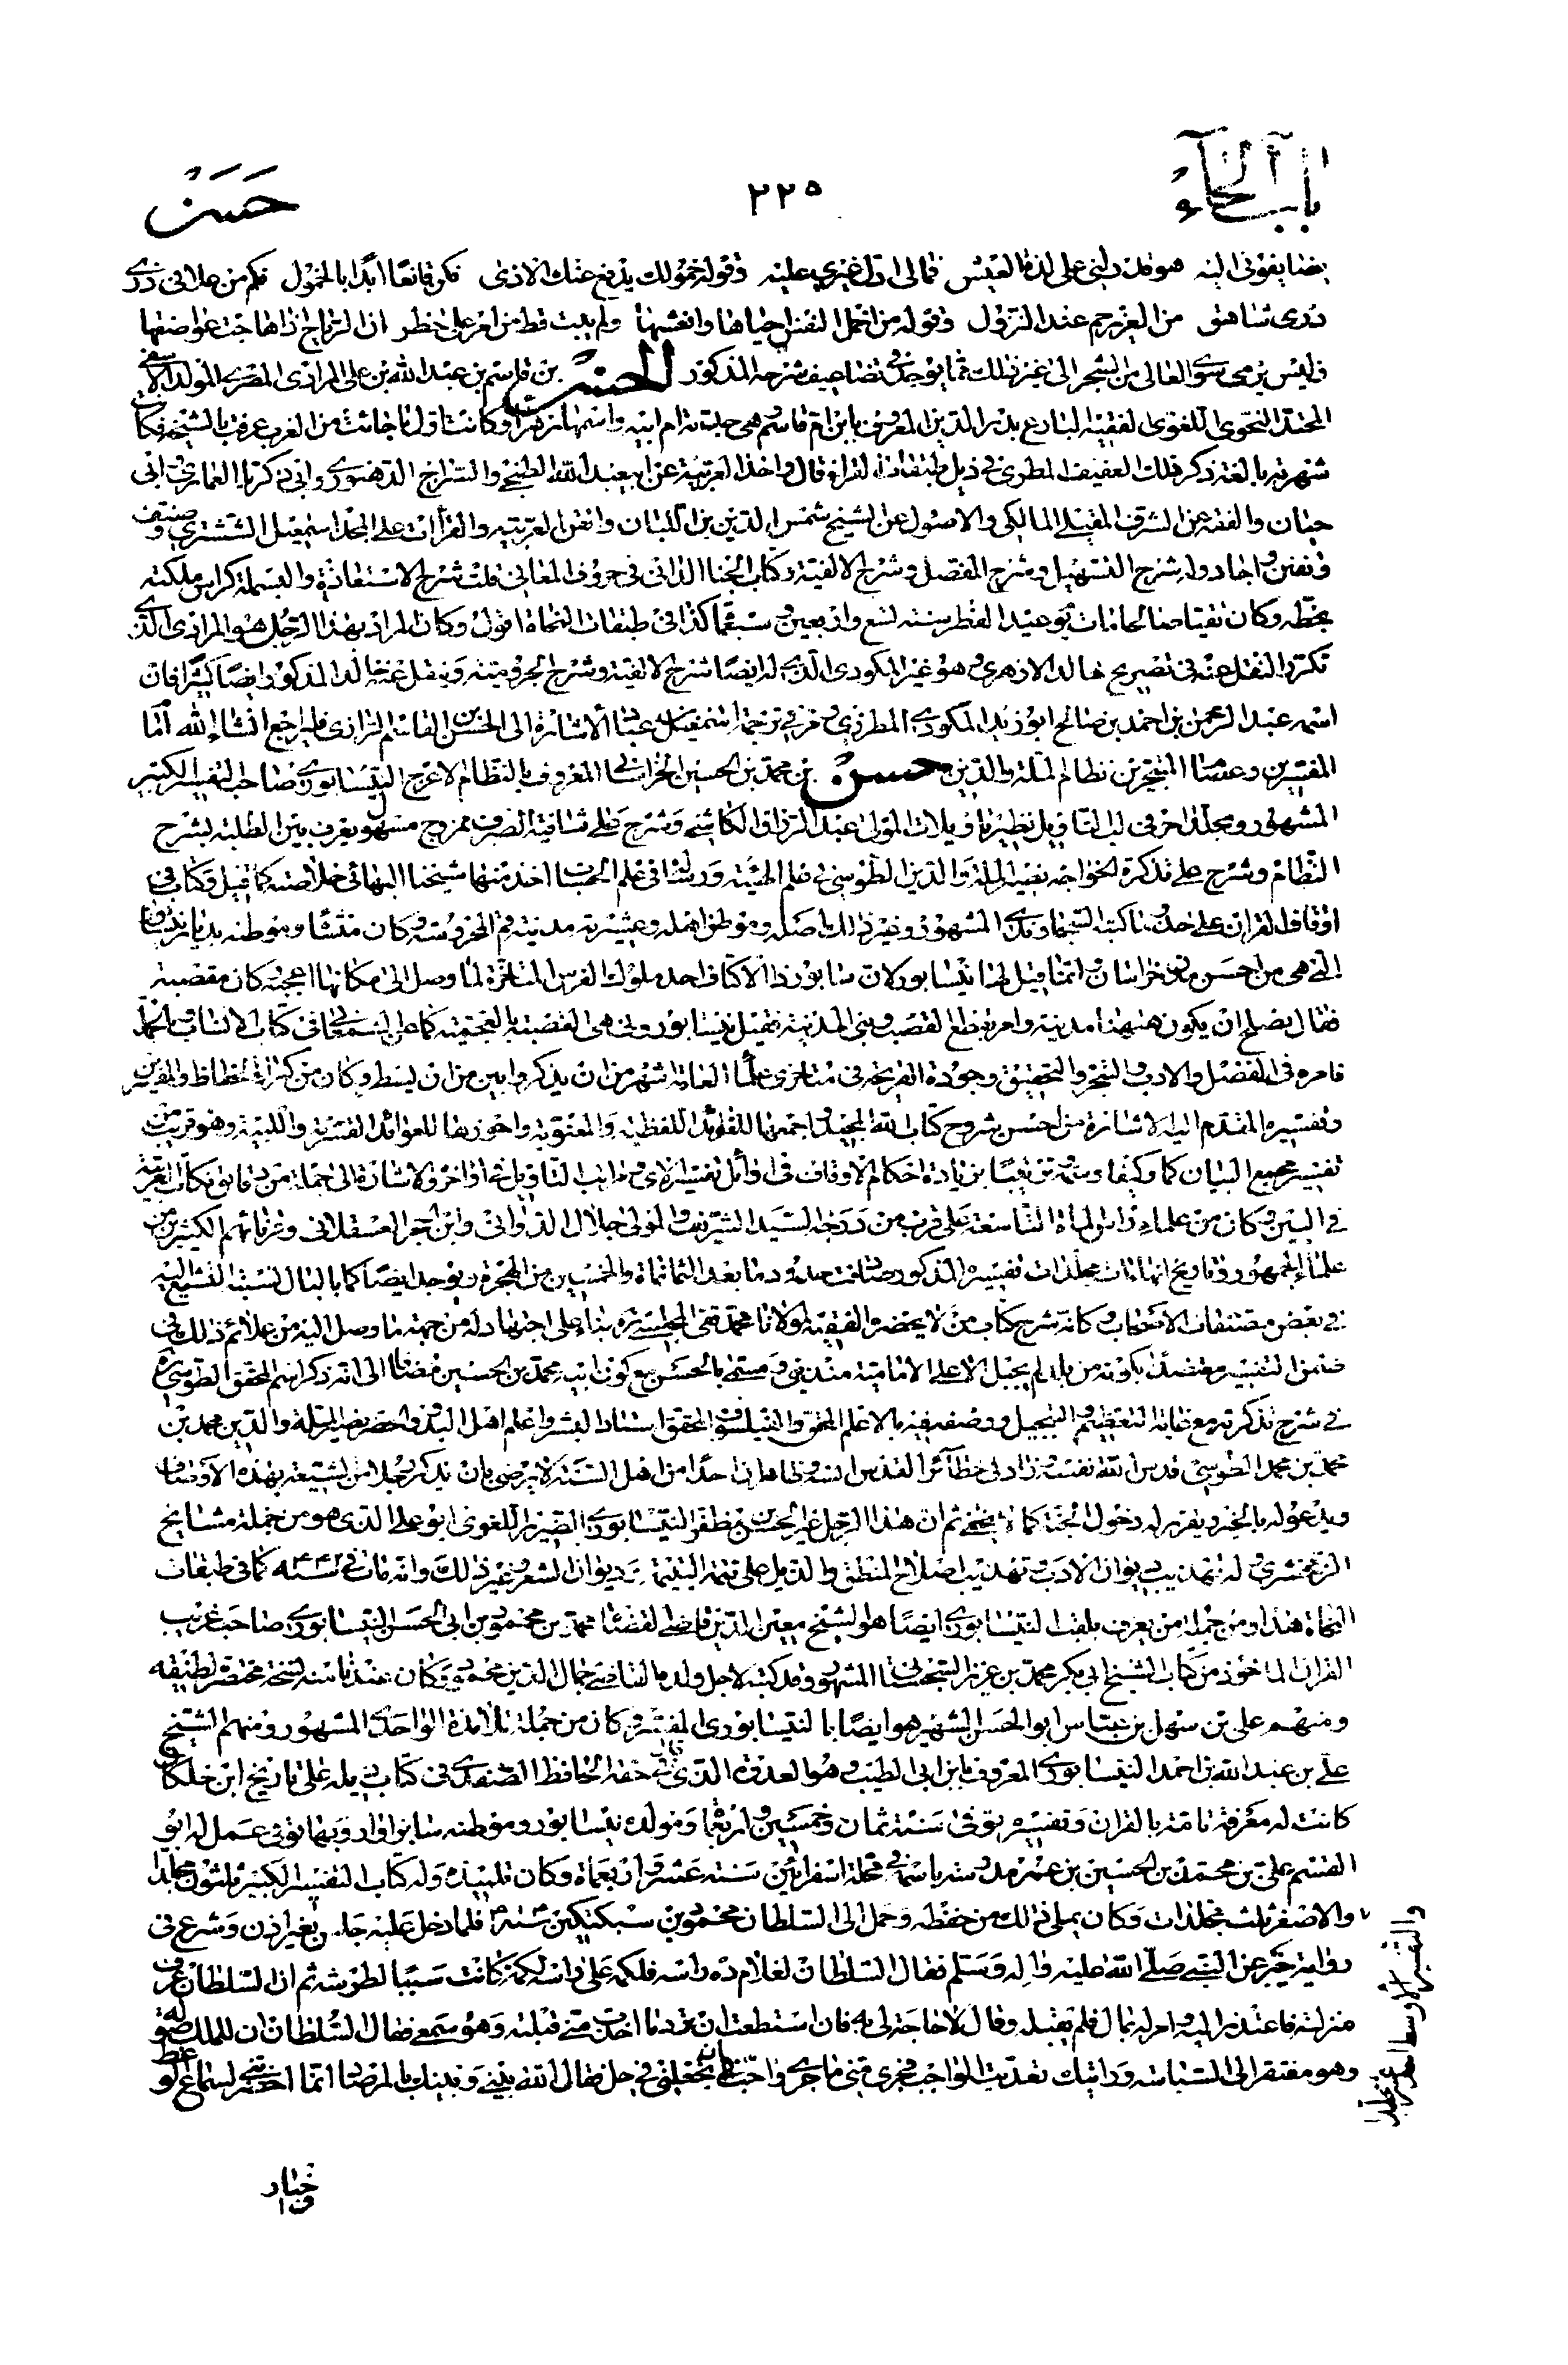 باب الحاء
٢٢٥
حسن
بعضنا يفوق اليه هو قد دلنى على لذة العيش فمالى ادل غيرى عليه وقوله خمولك يدفع عنك الاذى فكن قانعا ابدا بالخمول فكم من علا فى ذرى
ذرى شاهق من العز يرحم عند النزول وقوله من اخمل النفس احياها وانعشها ولم يبت قط من امر على خطر ان الرياح اذا هاجت عواصفها
فليس يرمى سوى العالى من الشجر الى غير ذلك مما يوجد فى تضاعيف شرحه المذكور الحسن بن قاسم بن عبد الله بن على المرادى المصرى المولد الاسفى
المحتد النحوى اللغوى الفقيه البارع بدر الدين المعروف بابن ام قاسم وهى جدته ام ابيه واسمها زهرا وكانت اول ما جائت من الغرب عرفت بالشيخة فكانت
شهرته تابعة ذكر ذلك العفيف المطرى فى ذيل طبقات القراء قال واخذ العربية عن ابى عبد الله الطنجى والسراج الدمنهورى وابى زكريا الغمارى وابى
حيان والفقه عن الشرف المقيلى المالكى والاصول عن الشيخ شمس الدين بن اللبان واتقن العربية والقرآات على المجد اسمعيل الششترى وصنف
وتفنن واجاد وله شرح التسهيل وشرح المفصل وشرح الالفية وكتاب الجنا الدانى فى حروف المعانى قلت شرح الاستعاذة والبسملة كراس ملكته
بخطه وكان تقيا صالحا مات يوم عيد الفطر سنة تسع واربعين وسبعمأة كذا فى طبقات النحاة اقول وكان المراد بهذا الرجل هو المرادى الذى
تكرر النقل عنه فى تصريح خالد الازهرى وهو غير المكودى الذى له ايضا شرح الالفية وشرح الجرومية وينقل عنه خالد المذكور ايضا كثيرا فان
اسمه عبد الرحمن بن احمد بن صالح ابو زيد المكودى المطرزى ومر فى ترجمة اسمعيل بن عباد الاشارة الى الحسن بن القاسم الرازى فليراجع انشاء الله امّا
المفسرين وعصام المتبحرين نظام الملة والدين حسن بن محمد بن الحسين الخراسانى المعروف بالنظام الاعرج النيسابورى صاحب التفسير الكبير
المشهور ومجلد آخر فى لب التاويل نظير تاويلات المولى عبد الرزاق الكاشى وشرح على شافية الصرف ممزوج مشهور يعرف بين الطلبة بشرح
النظام وشرح على تذكرة الخواجه نصير الملة والدين الطوسى فى علم الهيئة ورسالة فى علم الحساب اخذ منها شيخنا البهائى خلاصته كما قيل وكتاب فى
اوقاف القران على حذو ما كتبه السجاوندى المشهور وغير ذلك اصله وموطن اهله وعشيرته مدينة قم المحروسة وكان منشأه وموطنه بديار نيسابور
التى هى من احسن مدن خراسان وانما قيل لها نيسابور لان سابور ذا الاكتاف احد ملوك الفرس المتأخرة لما وصل الى مكانها اعجبه كان مقصبة
فقال يصلح ان يكون ههنا مدينة وامر بقطع القصب وبنى المدينة فقيل نيسابور ونى هى القصبة بالعجمية كما عن السمعانى فى كتاب الانساب وبالجملة
فامره فى الفضل والادب والتبحر والتحقيق وجودة القريحة فى متأخرى علماء العامة اشهر من ان يذكر وابين من ان يسطر وكان من كبراء الحفاظ والمفسرين
وتفسيره المتقدم اليه الاشارة من احسن شروح كتاب الله المجيد واجمعها للفوائد اللفظية والمعنوية واحوزها للعوائد القشرية واللبية وهو قريب من
تفسير مجمع البيان كما وكيفا وسمة وترتيبا بزيادة احكام الاوقاف فى اوائل تفسير الآى ومراتب التاويل فى اواخره والاشارة الى جملة من دقايق نكات العربية
فى البين وكان من علماء رأس المأة التاسعة على قرب من درجة السيد الشريف والمولى جلال الدين الدوانى وابن حجر العسقلانى وقرنائهم الكثيرين من
علماء الجمهور وتاريخ انهاءات مجلدات تفسيره المذكور صادفت حدود ما بعد الثمانمأة والخمسين من الهجرة ويوجد ايضا كما بالبال نسبة التشيع اليه
فى بعض مصنفات الاصحاب وكانه شرح كتاب من لا يحضره الفقيه لمولانا محمد تقى المجلسى ره بناء على اجتهاد له من جهة ما وصل اليه من علائم ذلك فى
ضمن التفسير معتضدا بكونه من بلد لم يجبل الا على الامامية منذ بنى ومسمى بالحسن مع كون ابيه محمد بن الحسين مضافا الى انه ذكر اسم المحقق الطوسى ره
فى شرح تذكرته مع غاية التعظيم والتبجيل ووصفه فيه بالاعلم المحقق والفيلسوف المحقق استاد البشر واعلم اهل البدو والحضر نصير الملة والدين محمد بن
محمد بن محمد الطوسى قدس الله نفسه وزاد فى حظائر القدس انسه وظاهر ان احدا من اهل السنة لا يرضى بان يذكر رجلا من الشيعة بهذه الاوصاف
ويدعو له بالخير ويقر له دخول الجنة كما لا يخفى ثم ان هذا الرجل غير الحسن بن مظفر النيسابورى الضرير اللغوى ابو على الذى هو من جملة مشايخ
الزمخشرى له تهذيب ديوان الادب تهذيب اصلاح المنطق والذيل على تتمة اليتيمة وديوان الشعر وغير ذلك وانه مات فى سنة ٤٤٢ كما فى طبقات
النحاة هذا ومن جملة من يعرف بلقب النيسابورى ايضا هو الشيخ معين الدين قاضى القضاة محمد بن محمود بن ابى الحسن النيسابورى صاحب غريب
القران الماخوذ من كتاب الشيخ ابى بكر محمد بن عزيز السجستانى المشهور وقد كتبه لاجل ولده القاضى جمال الدين محمود وكان عندنا منه نسخة مختصرة لطيفة
ومنهم على بن سهل بن عباس ابو الحسن الشهير هو ايضا بالنيسابورى المفسر وكان من جملة تلامذة الواحدى المشهور ومنهم الشيخ
على بن عبد الله بن احمد النيسابورى المعروف بابن ابى الطيب وهو العدوة الذى قال فى حقه الحافظ الصفدى فى كتاب ذيله على تاريخ ابن خلكان
كانت له معرفة تامة بالقران وتفسيره توفى سنة ثمان وخمسين واربعمأة ومولده نيسابور وموطنه سابزوار وبها توفى عمل له ابو
القسم على بن محمد بن الحسين بن عمر مدرسة باسمه فى محلة اسفرائين سنة عشر واربعمأة وكان تلميذه وله كتاب التفسير الكبير ثلثون مجلدا
والاصغر ثلث مجلدات وكان يملى ذلك من حفظه وحمل الى السلطان محمود بن سبكتكين فلما دخل عليه جلس بغير اذن وشرع فى
رواية خبر عن النبى صلى الله عليه واله وسلم فقال السلطان لغلام ده راسه فلكمه على راسه لكمة كانت سببا لطرشه ثم ان السلطان عرف
منزلته فاعتذر اليه وامر له بمال فلم يقبله وقال لا حاجة لى به فان استطعت ان ترد ما اخذت منى قبلته وهو سمعى فقال السلطان ان للملك صولة
وهو مفتقر الى السياسة ورايتك تعديت الواجب فجرى منى ما جرى واحب ان تجعلنى فى حل فقال الله بينى وبينك بالمرصاد انما احضرتنى لسماع الوعظ
والتفسير الاوسط عشر مجلدا
واخبار